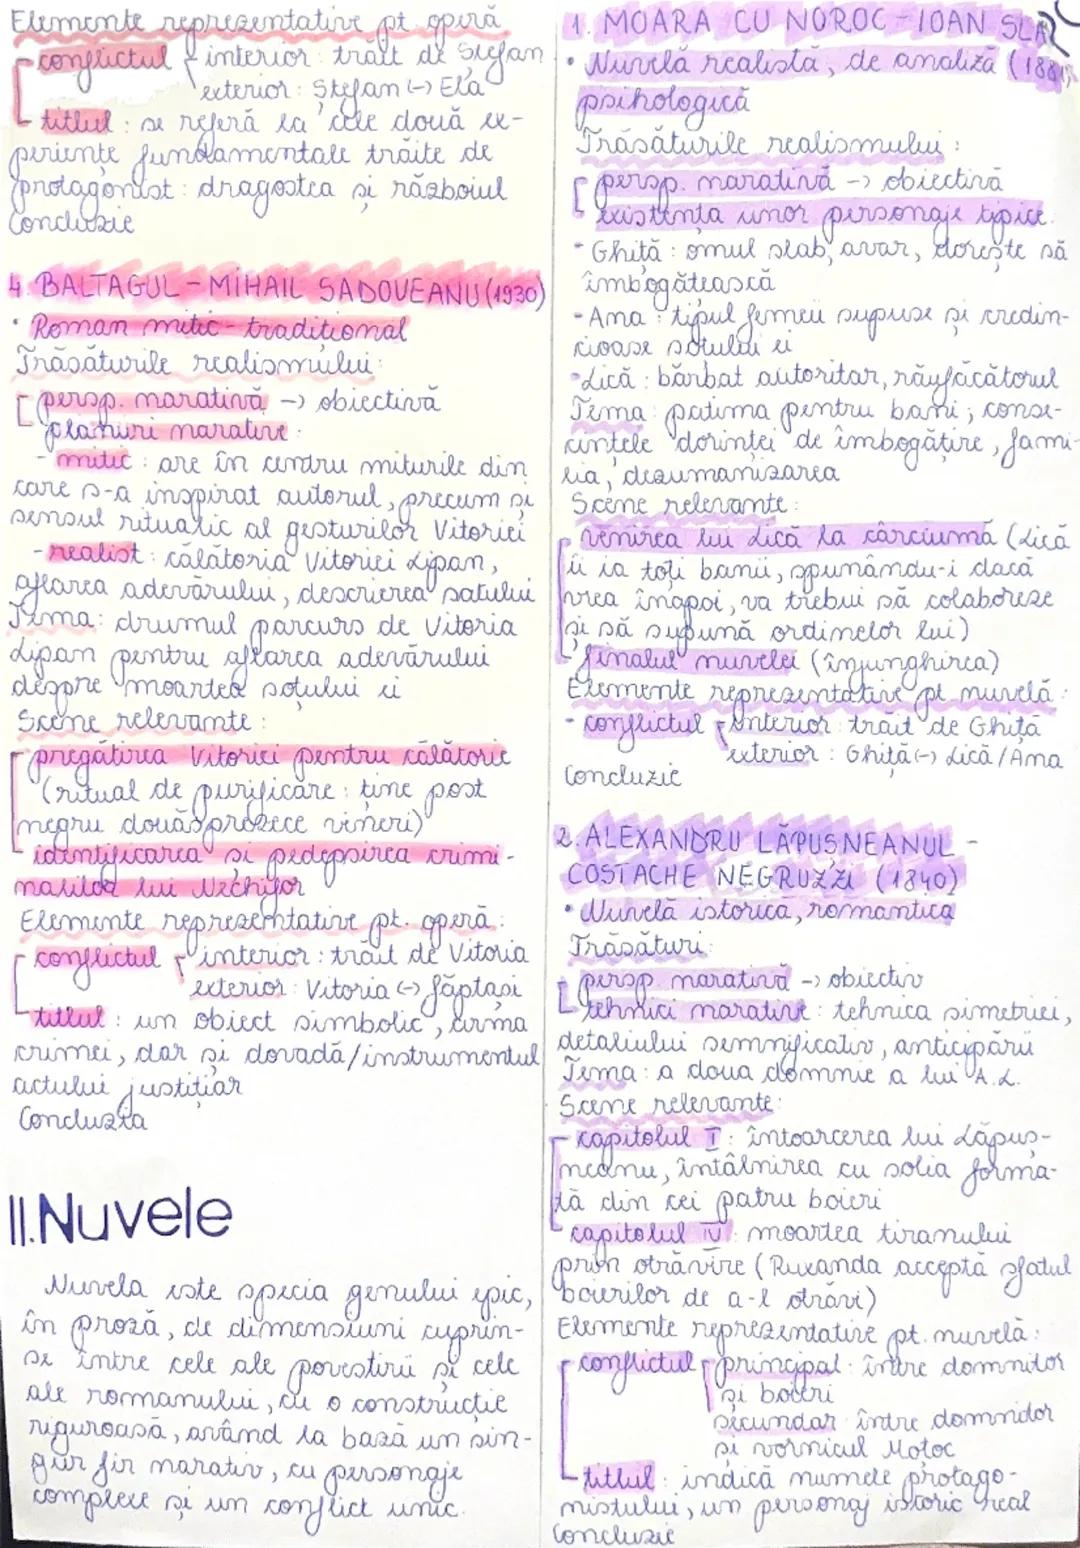 Elemente reprezentative pt. operă
conflictul interior: trăit de Ștefan
exterior: Ștefan <-> Ela
titlul: se referă la cele două ex-
periențe fundamentale trăite de
protagonist: dragostea și războiul
Concluzie
4. BALTAGUL - MIHAIL SADOVEANU (1930)
• Roman mitic - tradițional
Trăsăturile realismului:
persp. narativă -> obiectivă
planuri narative:
- mitic: are în centru miturile din
care s-a inspirat autorul, precum și
sensul ritualic al gesturilor Vitoriei
- realist: călătoria Vitoriei Lipan,
aflarea adevărului, descrierea satului
Tema: drumul parcurs de Vitoria
Lipan pentru aflarea adevărului
despre moartea soțului ei
Scene relevante:
pregătirea Vitoriei pentru călătorie
(ritual de purificare: ține post
negru douăsprezece vineri)
identificarea și pedepsirea crimi-
nalilor lui Nechifor
Elemente reprezentative pt. operă:
conflictul interior: trăit de Vitoria
exterior: Vitoria <-> făptași
titlul: un obiect simbolic, arma
crimei, dar și dovadă/instrumentul
actului justițiar
Concluzia
II. Nuvele
Nuvela este specia genului epic,
în proză, de dimensiuni cuprin-
se între cele ale povestirii și cele
ale romanului, cu o construcție
riguroasă, având la bază un sin-
gur fir narativ, cu personaje
complexe și un conflict unic.
1. MOARA CU NOROC - IOAN SLA
• Nuvelă realistă, de analiză (1881)
psihologică
Trăsăturile realismului:
persp. narativă -> obiectivă
existența unor personaje tipice.
- Ghiță: omul slab, avar, dorește să
îmbogătească
- Ana: tipul femeii supuse și credin-
cioase soțului ei
- Lică: bărbat autoritar, răufăcătorul
Tema: patima pentru bani; conse-
cințele dorinței de îmbogățire, fami-
lia, dezumanizarea
Scene relevante:
venirea lui Lică la cârciumă (Lică
îi ia toți banii, spunându-i dacă
vrea înapoi, va trebui să colaboreze
și să supună ordinelor lui)
finalul nuvelei (înjunghirea)
Elemente reprezentative pt. nuvelă:
- conflictul interior: trăit de Ghiță
exterior: Ghiță <-> Lică/Ana
Concluzie
2. ALEXANDRU LĂPUȘNEANUL -
COSTACHE NEGRUZZI (1840)
• Nuvelă istorică, romantică
Trăsături:
persp. narativă -> obiectiv
tehnici narative: tehnica simetriei,
detaliului semnificativ, anticipării
Tema: a doua domnie a lui A.L.
Scene relevante:
capitolul I: întoarcerea lui Lăpuș-
neanu, întâlnirea cu solia forma-
tă din cei patru boieri
capitolul IV: moartea tiranului
prin otrăvire (Ruxanda acceptă sfatul
boierilor de a-l otrăvi)
Elemente reprezentative pt. nuvelă:
conflictul principal: între domnitor
și boieri
secundar între domnitor
și vornicul Moțoc
titlul: indică numele protago-
nistului, un personaj istoric real
Concluzie